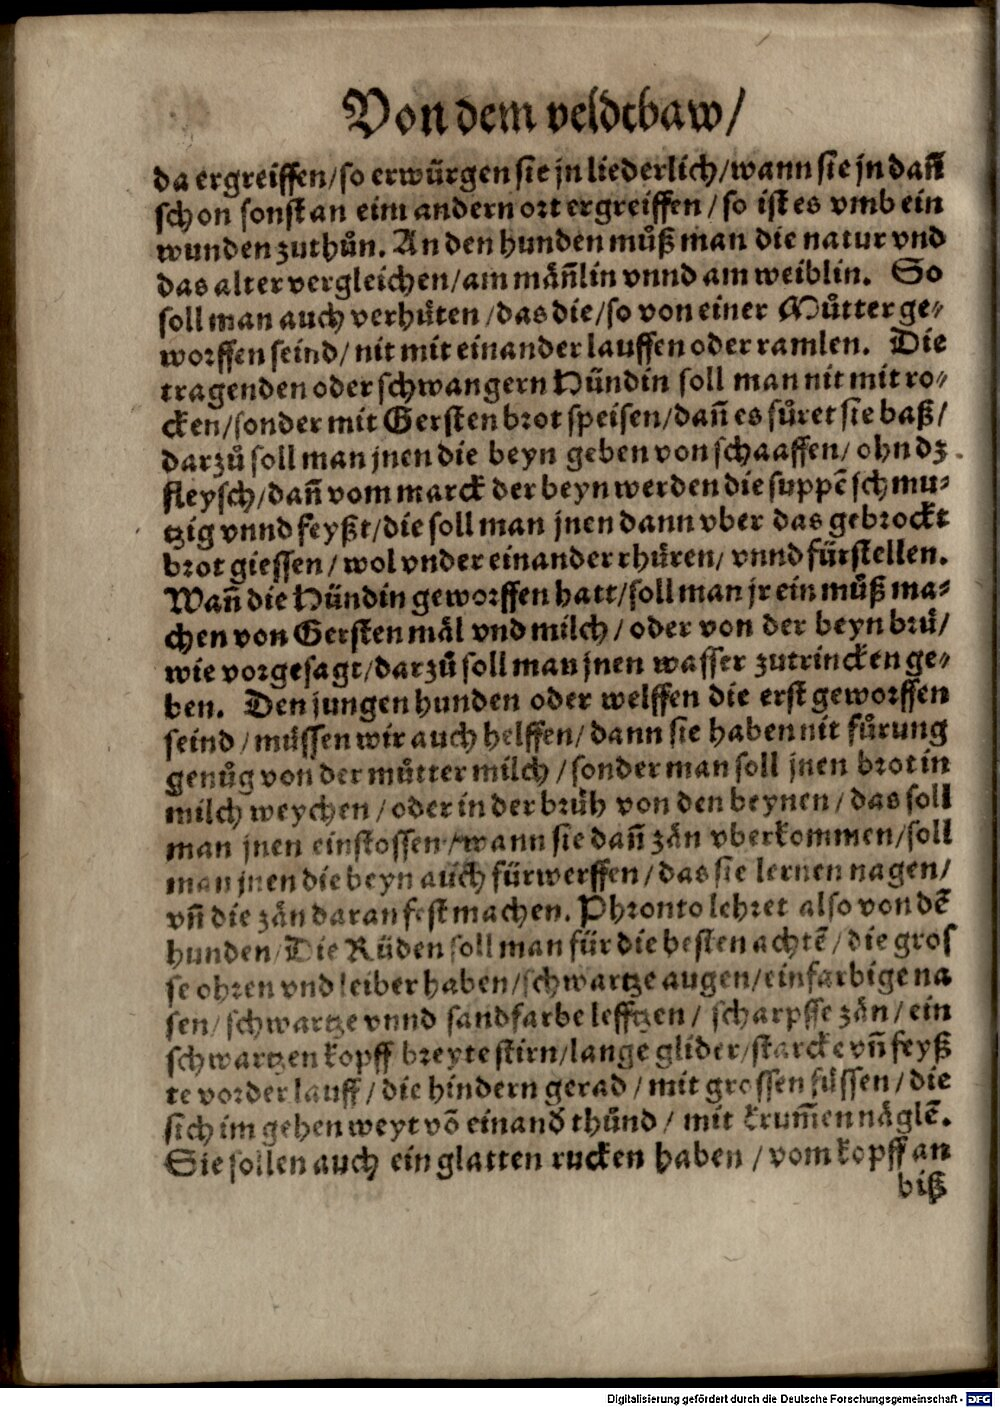 Von dem veldtbaw/
da ergreiffen/so erwürgen sie jn liederlich/wann sie jn dañ
schon sonst an eim andern ort ergreiffen/so ist es vmb ein
wunden zuthůn. An den hunden můß man die natur vnd
das alter vergleichen/am mäñlin vnnd am weiblin. So
soll man auch verhüten/das die/so von einer Můtter ge-
worffen seind/nit mit einander lauffen oder ramlen. Die
tragenden oder schwangern Hündin soll man nit mit ro-
cken/sonder mit Gersten brot speisen/dañ es füret sie baß/
darzů soll man jnen die beyn geben von schaaffen/ohn dz
fleysch/dañ vom marck der beyn werden die suppẽ schmu-
tzig vnnd feyßt/die soll man jnen dann vber das gebrockt
brot giessen/wol vnder einander rhüren/vnnd fürstellen.
Wañ die Hündin geworffen hatt/soll man jr ein můß ma-
chen von Gersten mäl vnd milch/oder von der beyn brü/
wie vorgesagt/darzů soll man jnen wasser zutrincken ge-
ben. Den jungen hunden oder welffen die erst geworffen
seind/müssen wir auch helffen/dann sie haben nit fürung
genůg von der můtter milch/sonder man soll jnen brot in
milch weychen/oder in der brüh von den beynen/das soll
man jnen einstossen/wann sie dañ zän vberkommen/soll
man jnen die beyn auch fürwerffen/das sie lernen nagen/
vñ die zän daran fest machen. Phronto lehret also von dẽ
hunden/Die Rüden soll man für die besten achtẽ/die gros
se ohren vnd leiber haben/schwartze augen/einfarbige na
sen/schwartze vnnd sandfarbe lefftzen/scharpffe zän/ein
schwartzen kopff breyte stirn/lange glider/starcke vñ feyß
te vorder lauff/die hindern gerad/mit grossen füssen/die
sich im gehen weyt võ einand thünd/mit krum̃en näglẽ.
Sie sollen auch ein glatten rucken haben/vom kopff an
biß
Digitalisierung gefördert durch die Deutsche Forschungsgemeinschaft - DFG